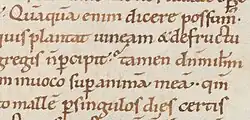 Quaquā enim dicere possum
quis plantat uineam & defructu
gregis n̄ p̄cipit. tamen dn̄i
m inuoco sup animā meā. qm
to malle p singulos dies certis